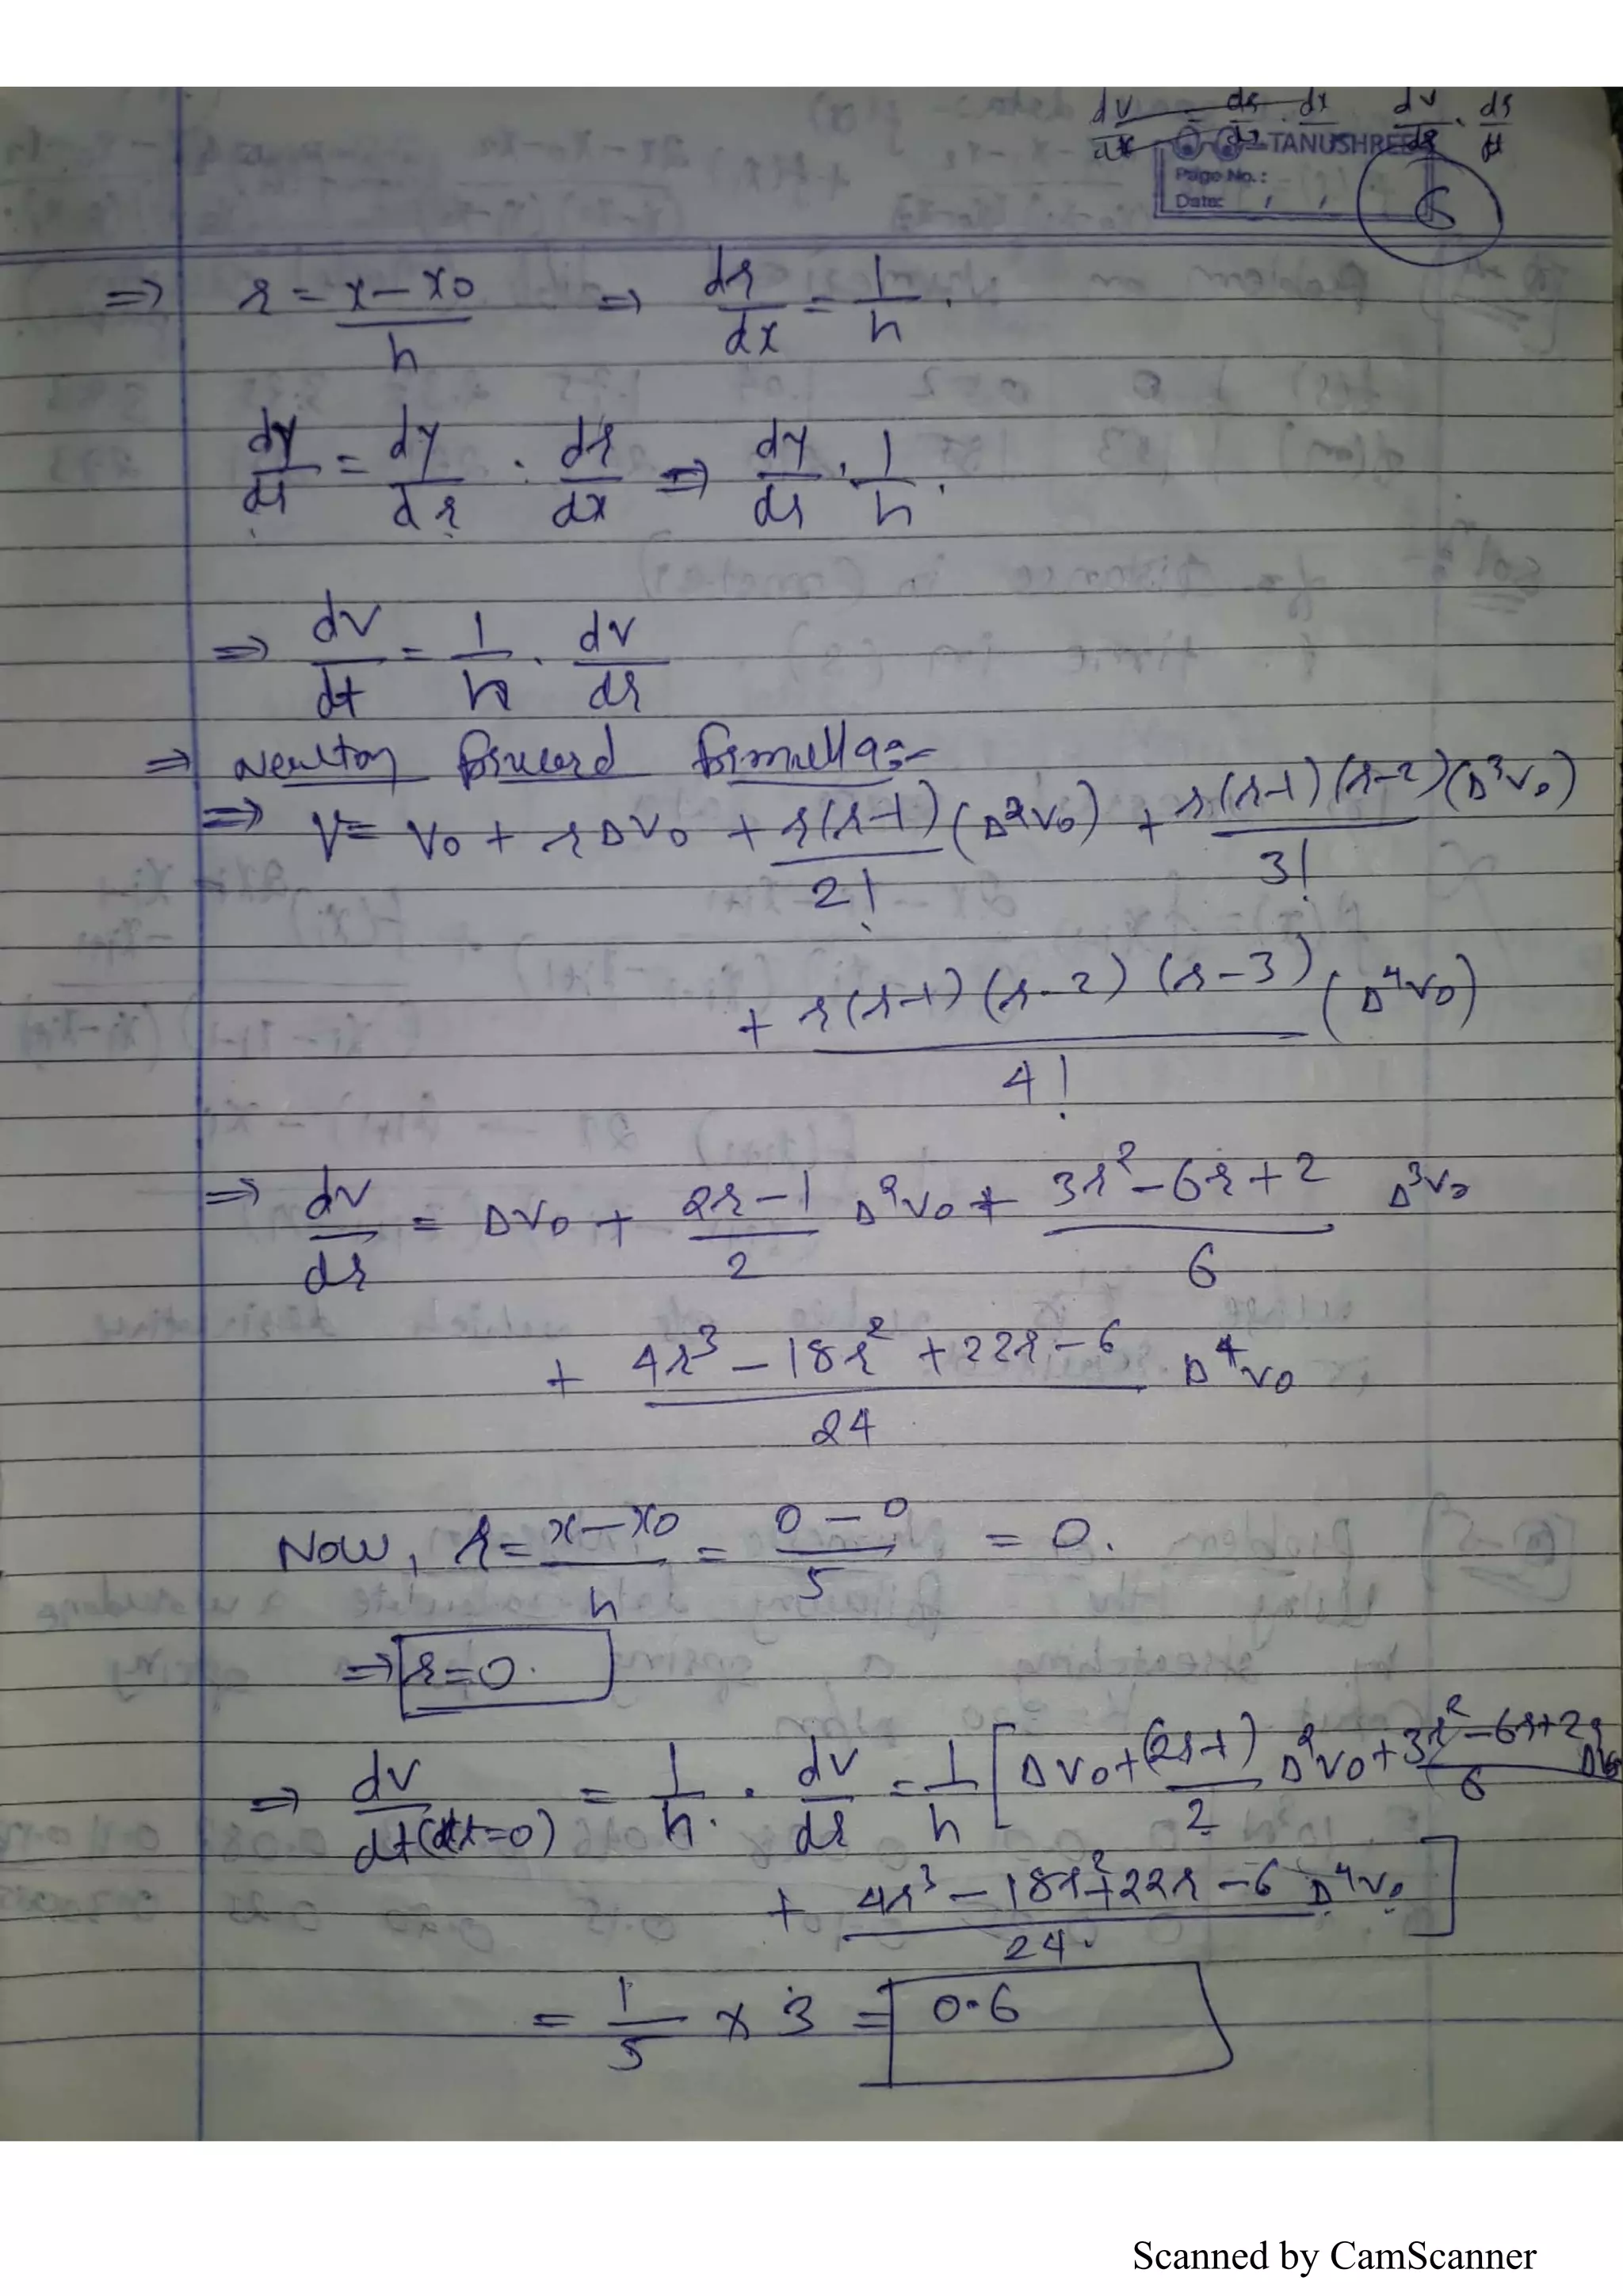 dv/dx = ds/dz · dx/ dv/ds · ds/
TANUSHREE
Page No.:
Date: / /
6
⇒ r = (x - x0)/h ⇒ dr/dx = 1/h.
dy/dr = dy/dr · dr/dx ⇒ dy/dr · 1/h.
⇒ dv/dt = 1/h · dv/dr
⇒ Newton forward formulla:-
⇒ V = V0 + rΔV0 + r(r-1)/2! (Δ²V0) + r(r-1)(r-2)/3! (Δ³V0)
+ r(r-1)(r-2)(r-3)/4! (Δ⁴V0)
⇒ dv/dr = ΔV0 + (2r-1)/2 Δ²V0 + (3r²-6r+2)/6 Δ³V0
+ (4r³-18r²+22r-6)/24 Δ⁴V0
Now, r = (x-x0)/h = (0-0)/5 = 0.
⇒ r=0.
⇒ dv/dt (t=0) = 1/h · dv/dr = 1/h [ΔV0 + (2r-1)/2 Δ²V0 + (3r²-6r+2)/6 Δ³V0
+ (4r³-18r²+22r-6)/24 Δ⁴V0]
= 1/5 × 3 = 0.6
Scanned by CamScanner